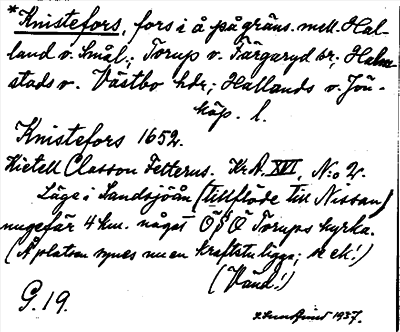 *Knistefors, fors i å på gräns. mell. Hal-
land o. Smål.; Torup o. Färgaryd sr, Halm-
stads o. Västbo hdr; Hallands o. Jön-
köp. l.
Knistefors 1652.
Kietell Classon Felterus. Kr.A. XVI, N:o 2.
Läge i Sandsjöån (tillflöde till Nissan)
ungefär 4 km. något Ö§Ö Torups kyrka.
(Å platsen synes nu en kraftstn ligga; se ek!)
(Vänd!)
G. 19.
1937.